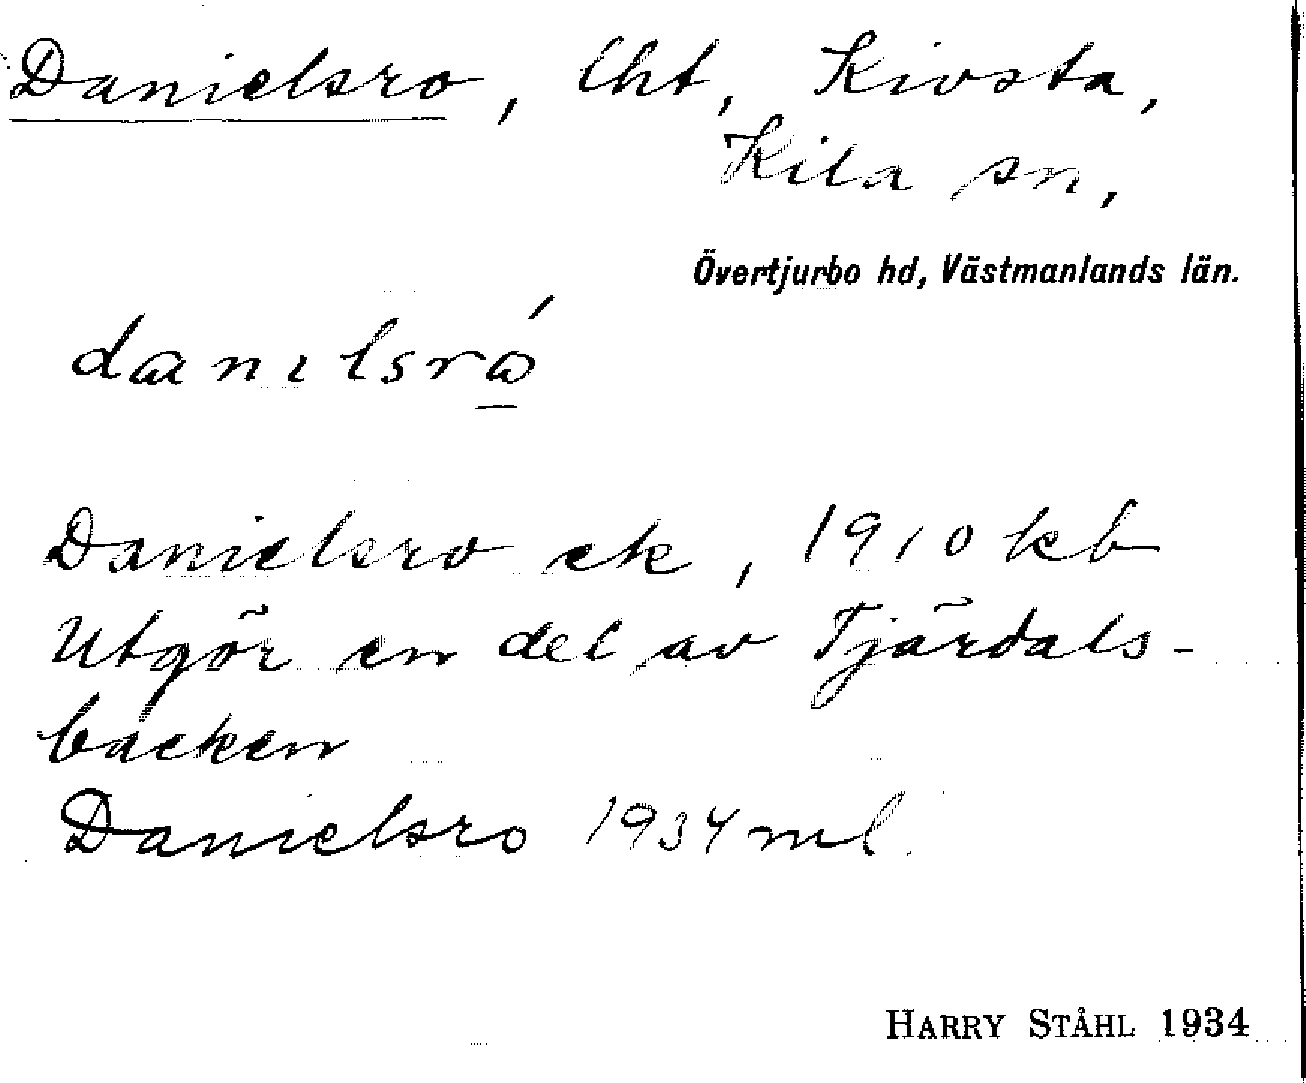 Danielsro, lht, Kivsta,
Kila sn,
Övertjurbo hd, Västmanlands län.
danɩlsrώ̲
Danielsro ek, 1910 kb
Utgör en del av Tjärdals-
backen
Danielsro 1934 ml
HARRY STÅHL 1934